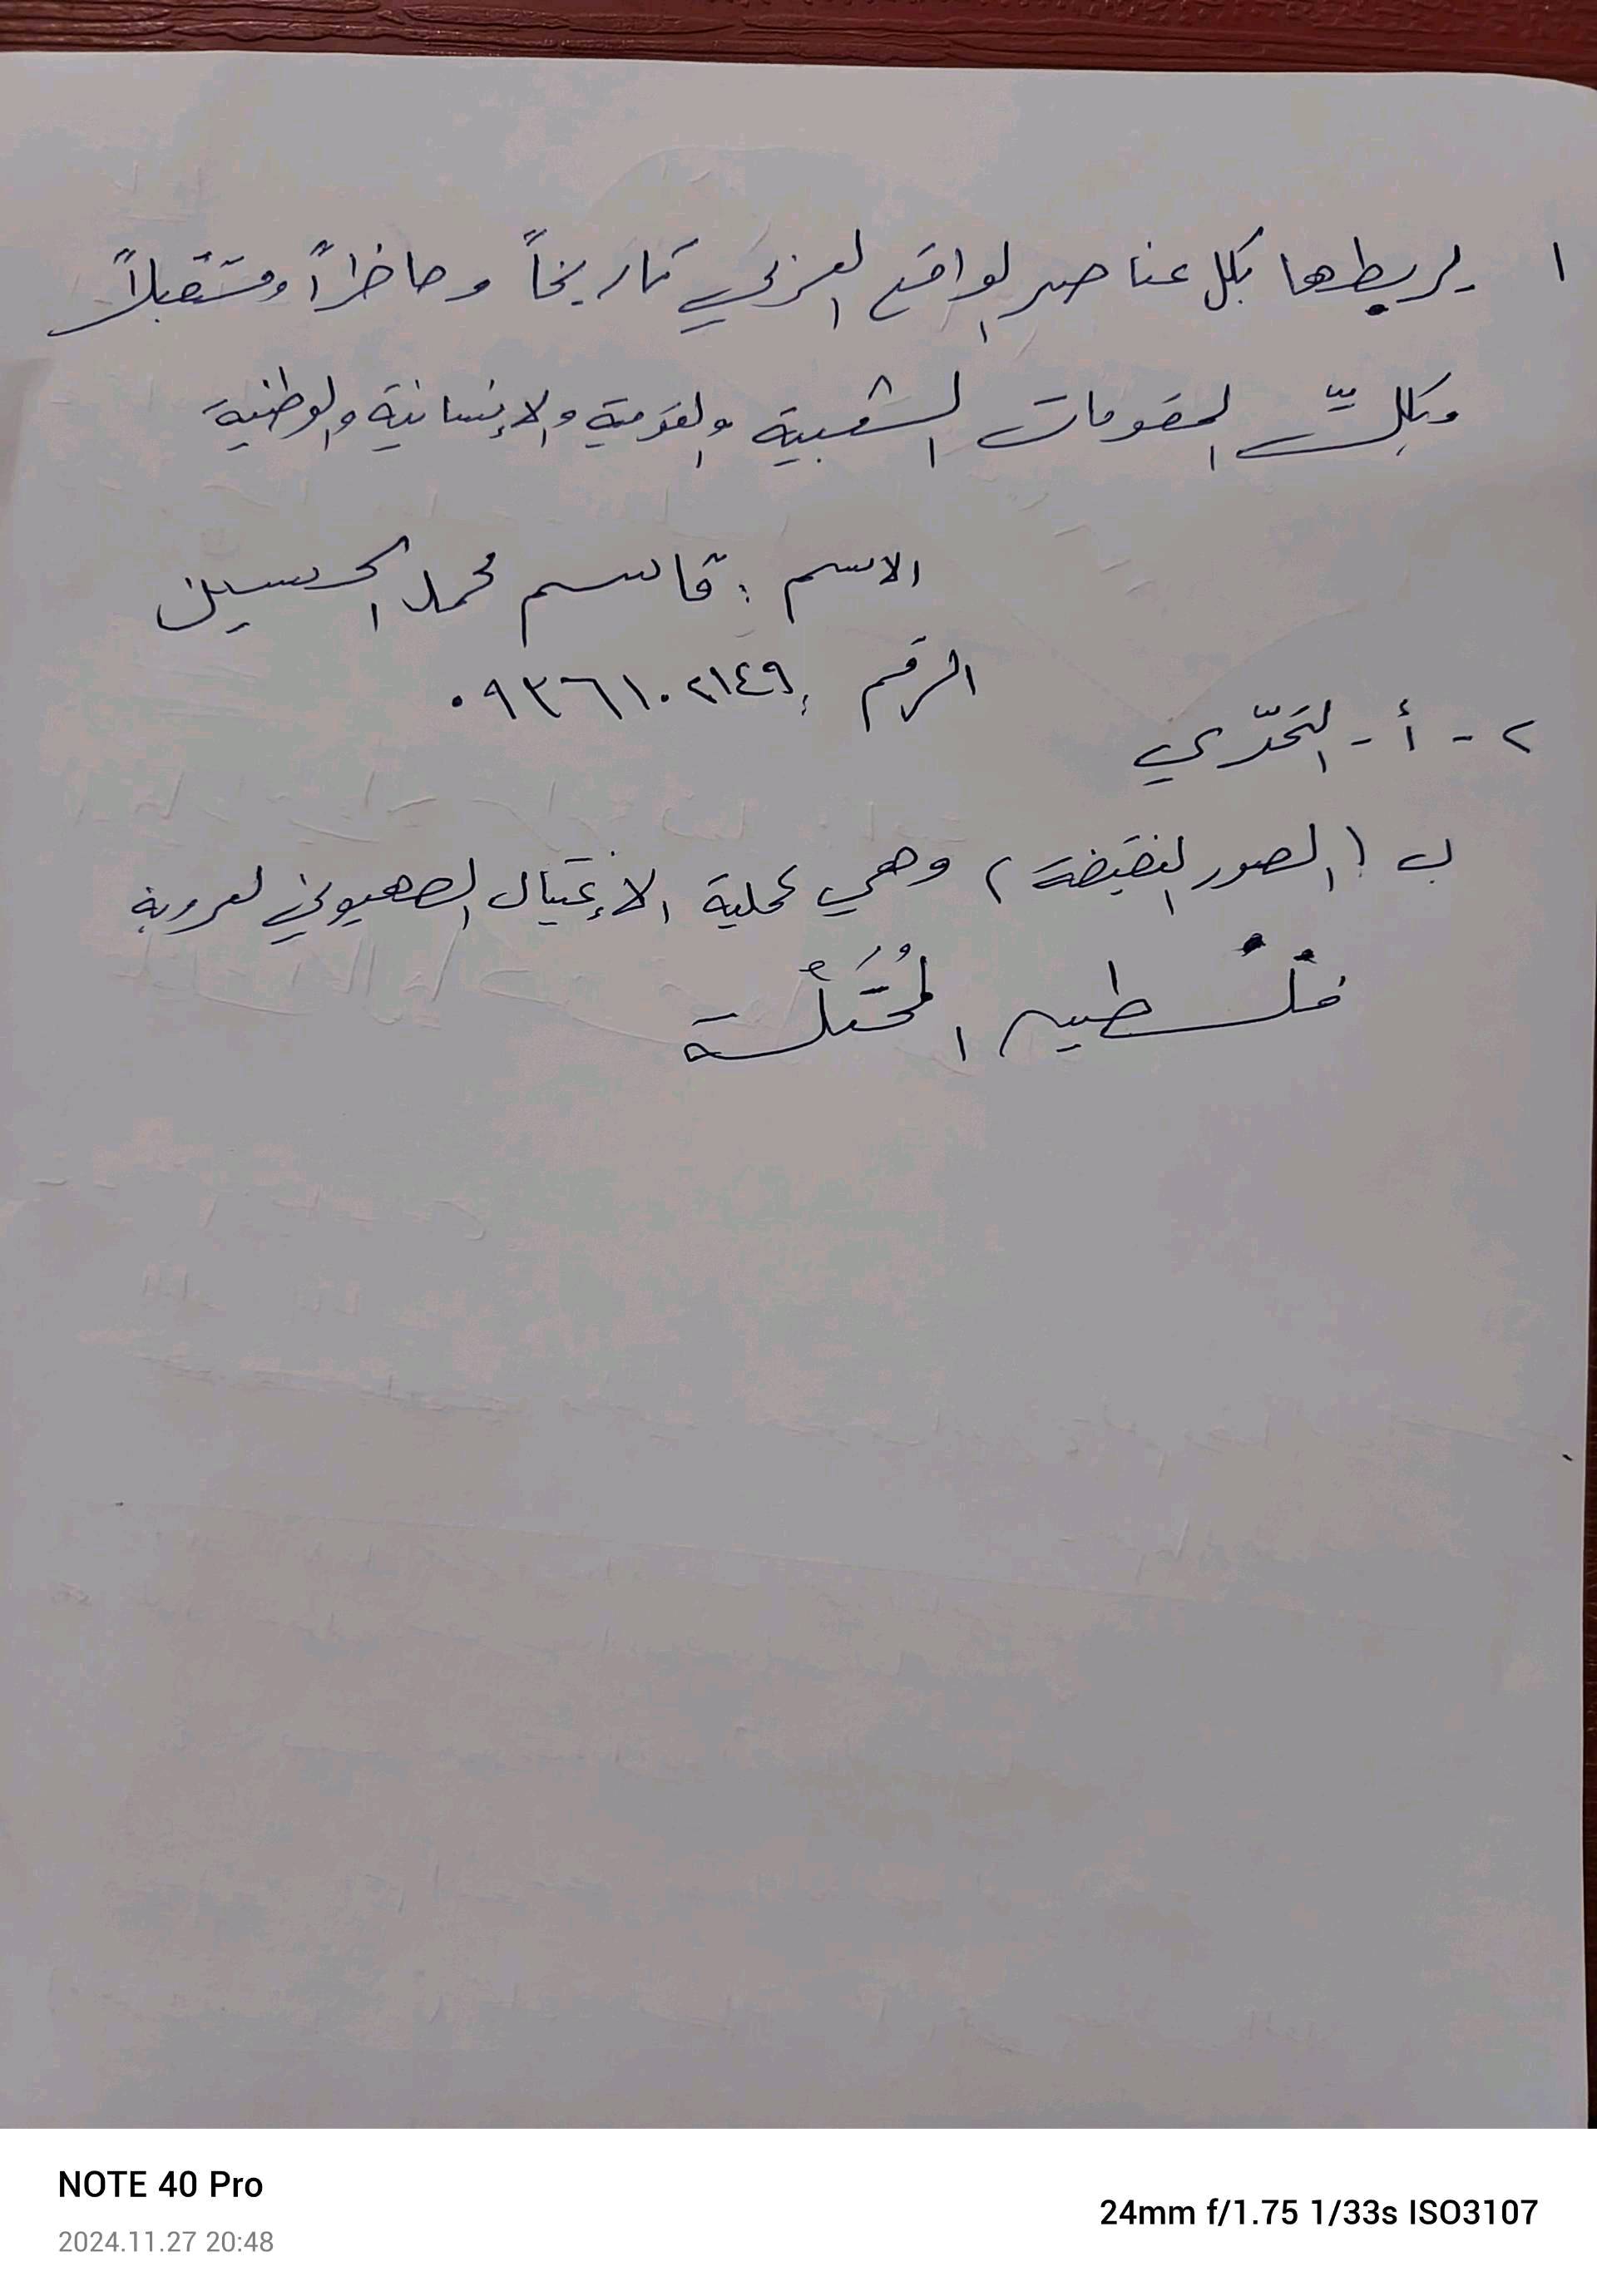 ١ يربطها بكل عناصر الواقع العربي تاريخاً وحاظراً ومستقبلاً
وبكلّ المقومات الشعبية والقومية والإنسانية والوطنية
الاسم : قاسم محمد الحسين
الرقم : ٠٩٣٦١٠٢١٤٩
٢ - أ - التحدّي
ب ( الصور النقيضة ) وهي عملية الإغتيال الصهيوني لعروبة
فلسطين المُحتَلّة
NOTE 40 Pro
2024.11.27 20:48
24mm f/1.75 1/33s ISO3107